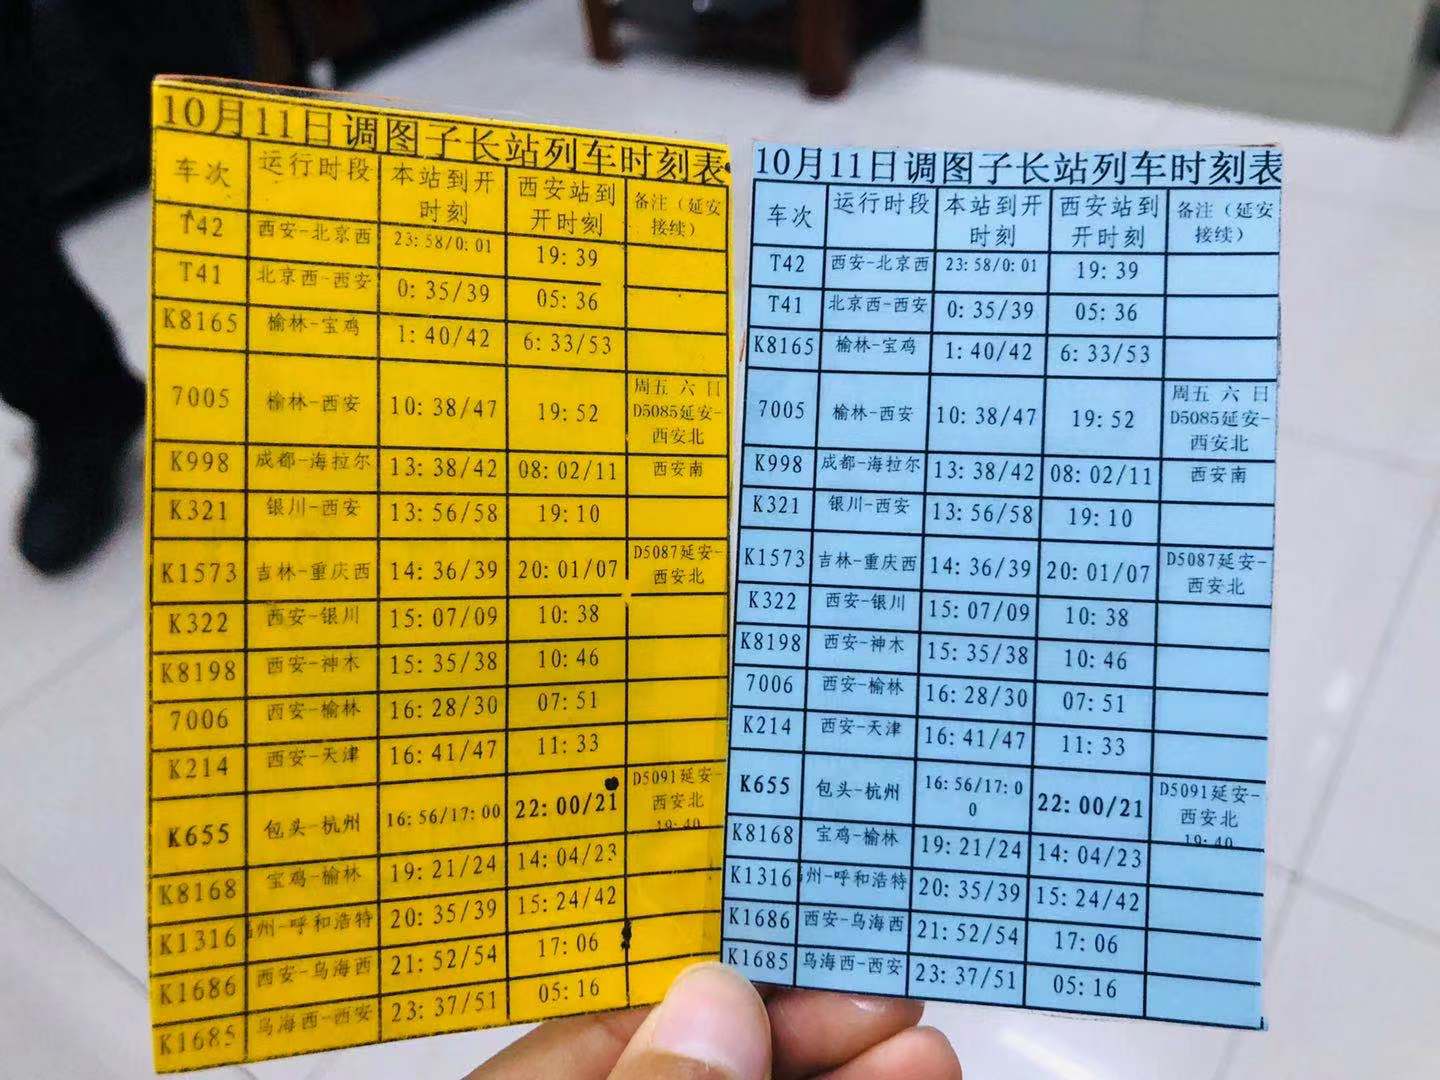 10月11日调图子长站列车时刻表
车次 运行时段 本站到开时刻 西安站到开时刻 备注（延安接续）
T42 西安-北京西 23:58/0:01 19:39
T41 北京西-西安 0:35/39 05:36
K8165 榆林-宝鸡 1:40/42 6:33/53
7005 榆林-西安 10:38/47 19:52 周五 六 日 D5085延安-西安北
K998 成都-海拉尔 13:38/42 08:02/11 西安南
K321 银川-西安 13:56/58 19:10
K1573 吉林-重庆西 14:36/39 20:01/07 D5087延安-西安北
K322 西安-银川 15:07/09 10:38
K8198 西安-神木 15:35/38 10:46
7006 西安-榆林 16:28/30 07:51
K214 西安-天津 16:41/47 11:33
K655 包头-杭州 16:56/17:00 22:00/21 D5091延安-西安北 19:40
K8168 宝鸡-榆林 19:21/24 14:04/23
K1316 州-呼和浩特 20:35/39 15:24/42
K1686 西安-乌海西 21:52/54 17:06
K1685 乌海西-西安 23:37/51 05:16
10月11日调图子长站列车时刻表
车次 运行时段 本站到开时刻 西安站到开时刻 备注（延安接续）
T42 西安-北京西 23:58/0:01 19:39
T41 北京西-西安 0:35/39 05:36
K8165 榆林-宝鸡 1:40/42 6:33/53
7005 榆林-西安 10:38/47 19:52 周五 六 日 D5085延安-西安北
K998 成都-海拉尔 13:38/42 08:02/11 西安南
K321 银川-西安 13:56/58 19:10
K1573 吉林-重庆西 14:36/39 20:01/07 D5087延安-西安北
K322 西安-银川 15:07/09 10:38
K8198 西安-神木 15:35/38 10:46
7006 西安-榆林 16:28/30 07:51
K214 西安-天津 16:41/47 11:33
K655 包头-杭州 16:56/17:00 22:00/21 D5091延安-西安北 19:40
K8168 宝鸡-榆林 19:21/24 14:04/23
K1316 州-呼和浩特 20:35/39 15:24/42
K1686 西安-乌海西 21:52/54 17:06
K1685 乌海西-西安 23:37/51 05:16